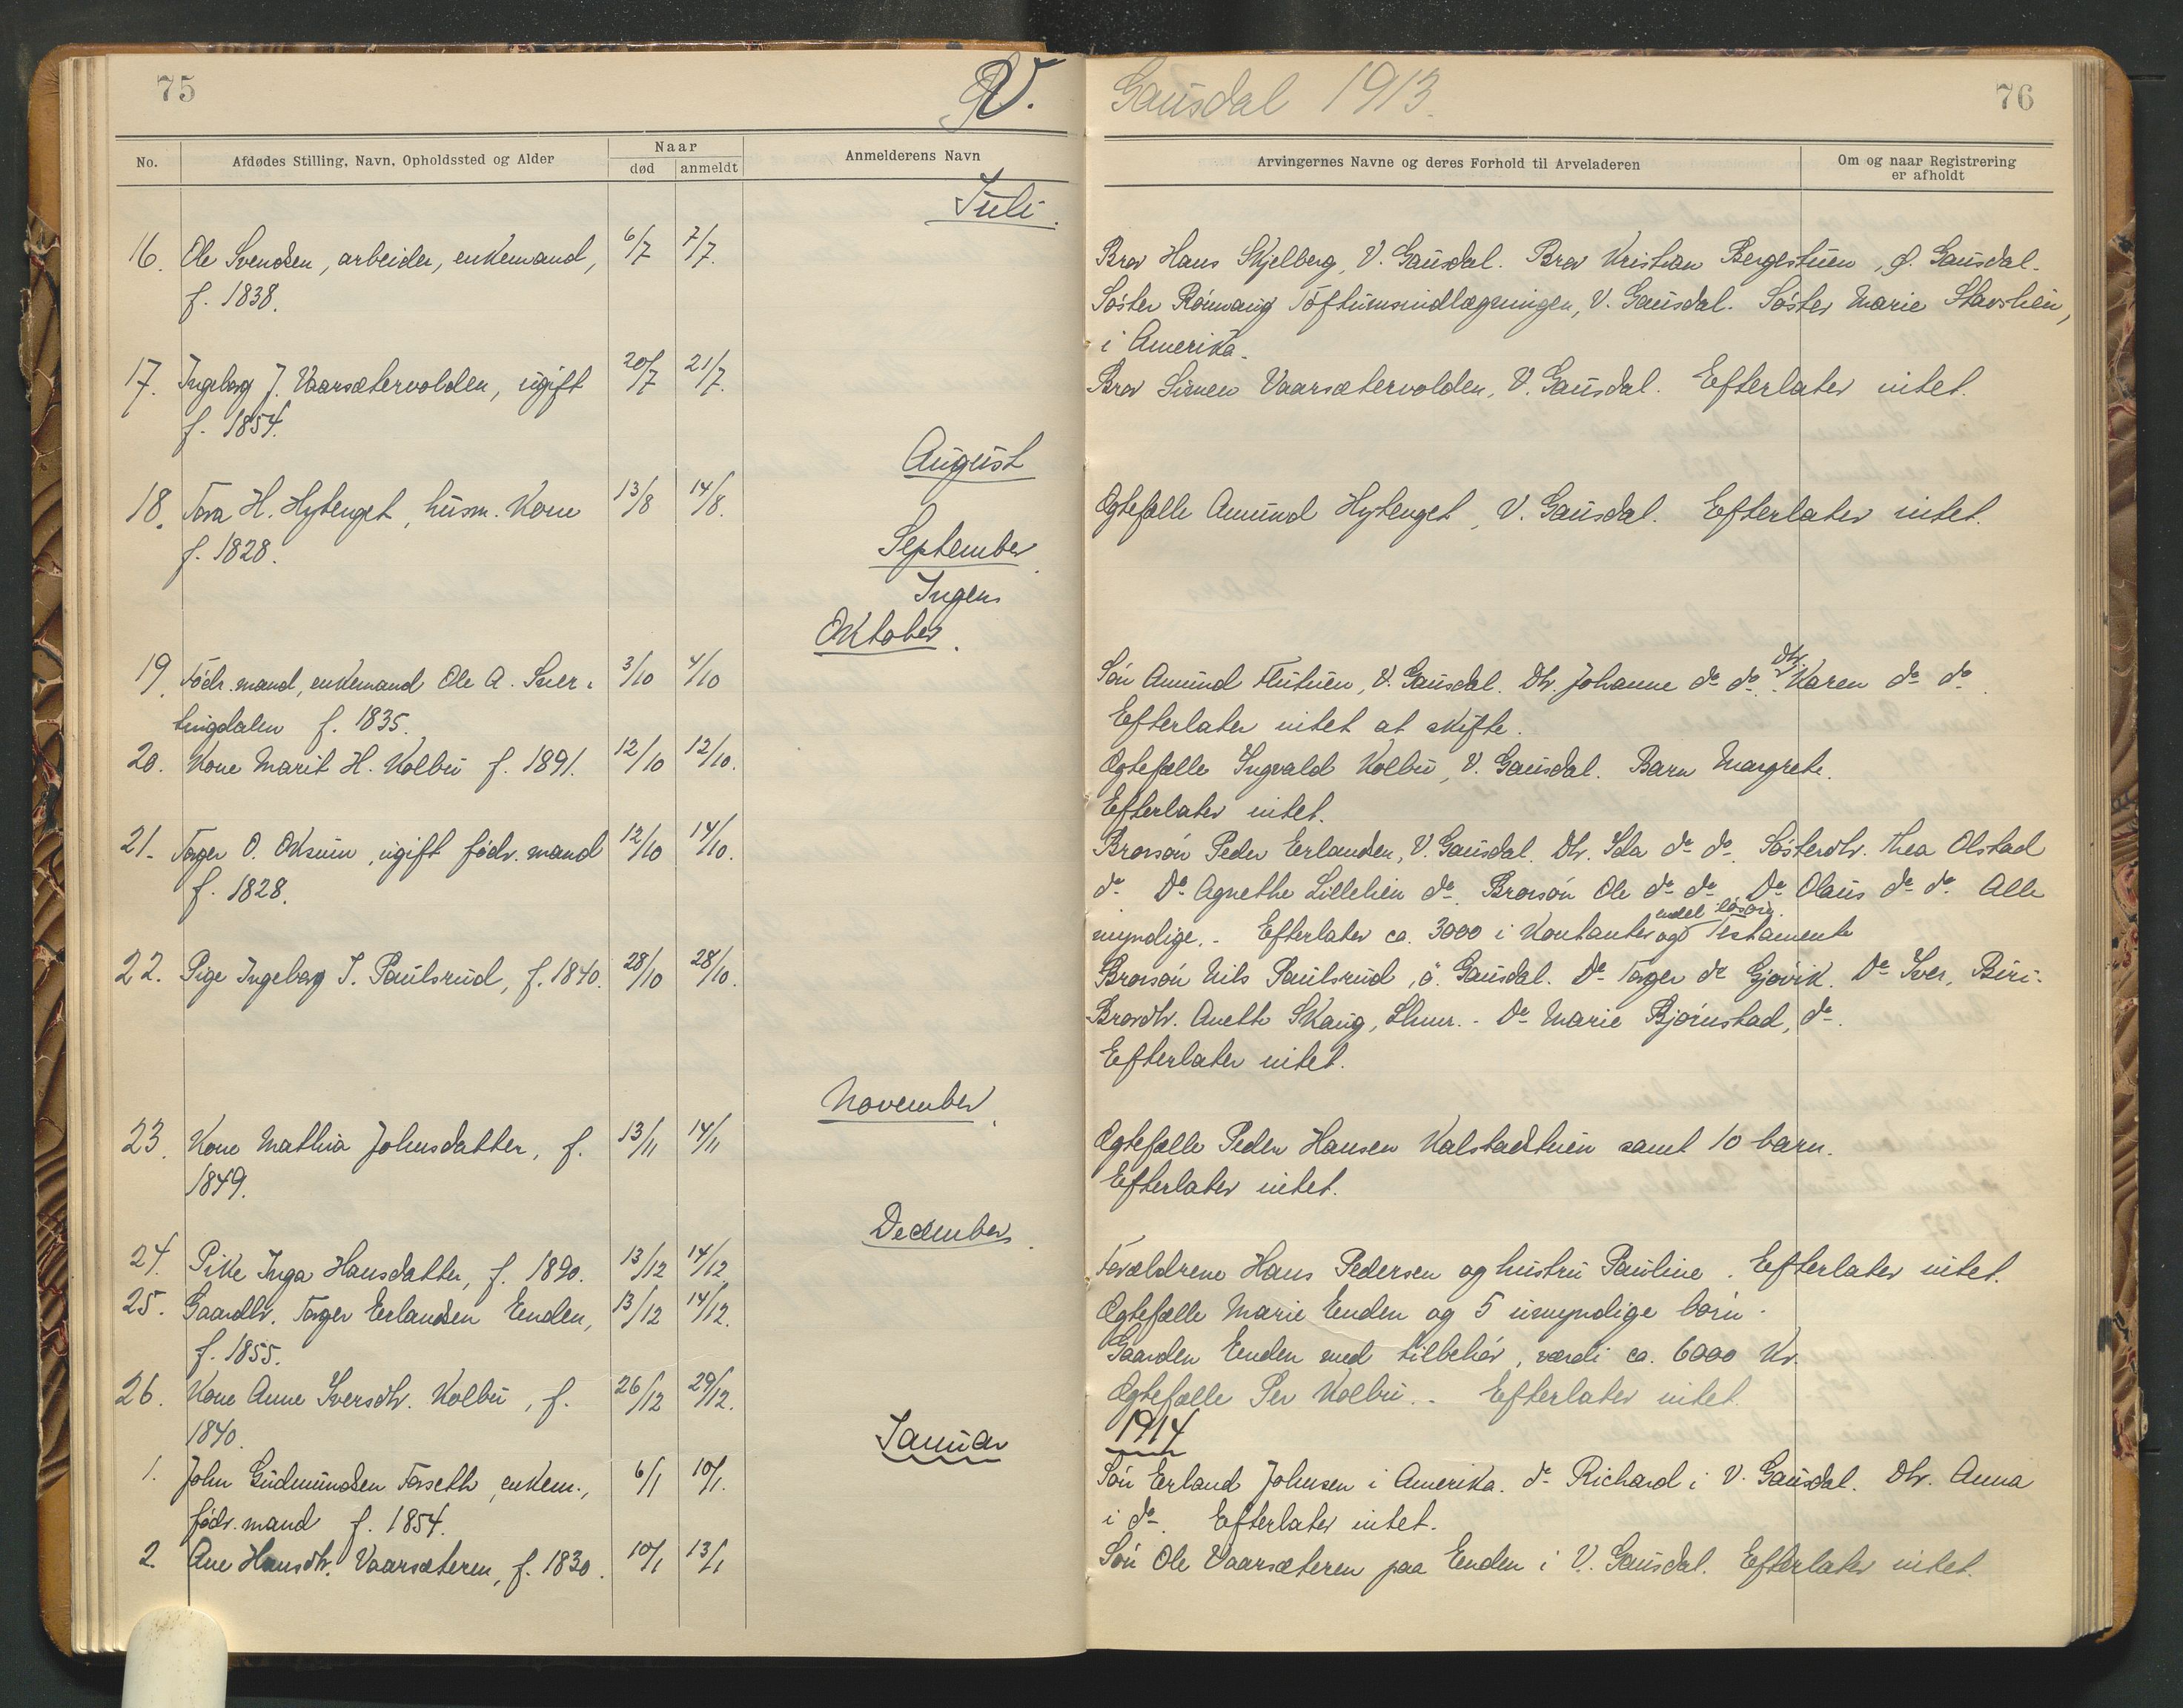 75
V.
Gausdal 1913.
76
No.
Afdødes Stilling, Navn, Opholdssted og Alder
Naar
død
anmeldt
Anmelderens Navn
Arvingernes Navne og deres Forhold til Arveladeren
Om og naar Registrering
er afholdt
Juli.
16. Ole Svendsen, arbeider, enkemand, 6/7 7/7.
f. 1838.
Bror Hans Skjelberg, V. Gausdal. Bror Kristian Bergestuen, Ø. Gausdal.
Søster Rønnaug Toftumsindlægningen, V. Gausdal. Søster Marie
i Amerika.
17. Ingeborg J. Vaarsætervolden, ugift 20/7 21/7.
f. 1854.
Bror Simen Vaarsætervolden, V. Gausdal. Efterlater intet.
August
18. Tora H. Hytenget, husm. Kone 13/8 14/8.
f. 1828.
Ægtefælle Amund Hytenget, V. Gausdal. Efterlater intet.
September.
Ingen
Oktober.
19. Födr. mand, enkemand Ole A. Sver- 3/10 4/10
tingdalen f. 1835.
Sön Amund Flutuen, V. Gausdal. Dtr. Johanne do do. Dtr. Karen do do.
Efterlater intet at skifte.
20. Kone Marit H. Kolbu f. 1891. 12/10 12/10.
Ægtefælle Ingvald Kolbu, V. Gausdal. Barn Margrete.
Efterlater intet.
21. Torger O. Oksum, ugift födr. mand 12/10 14/10.
f. 1828.
Brorsön Peder Erlandsen, V. Gausdal. Dtr. Ida do do. Søsterdtr. Thea Olstad
do. Do Agnethe Lillehien do. Brorsön Ole do do. Do Olaus do do. Alle
myndige. - Efterlater ca. 3000 i Kontanter og endel lösöre. Testamente
22. Pige Ingeborg I. Paulsrud, f. 1840. 28/10 28/10.
Brorsön Nils Paulsrud, ö. Gausdal. Do Torger do Gjövik. Do Iver, Biri.
Brordtr. Anette Skaug, Lhmr. - Do Marie Bjørnstad, do.
Efterlater intet.
November.
23. Kone Mathia Johnsdatter, f. 13/11 14/11
1849.
Ægtefælle Peder Hansen Kalstadstuen samt 10 barn.
Efterlater intet.
December.
24. Pike Inga Hansdatter, f. 1890. 13/12 14/12
Forældrene Hans Pedersen og hustru Pauline. Efterlater intet.
25. Gaardbr. Torger Erlandsen Enden, 13/12 14/12.
f. 1855.
Ægtefælle Marie Enden og 5 umyndige börn.
Gaarden Enden med tilbehör, værdi ca. 6000 Kr.
26. Kone Anne Iversdtr. Kolbu, f. 26/12 29/12.
1840.
Ægtefælle Per Kolbu. - Efterlater intet.
Januar
1914
1. John Gudmundsen Forseth, enkem., 6/1 10/1.
födr. mand f. 1854.
Sön Erland Johnsen i Amerika. do Richard i V. Gausdal. Dtr. Anna
i do. Efterlater intet.
2 Ane Hansdtr. Vaarsæteren, f. 1830. 10/1 13/1
Sön Ole Vaarsæteren paa Enden i V. Gausdal. Efterlater intet.